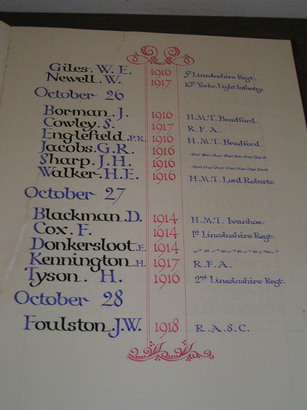 Giles. W. E. 1916 5th Lincolnshire Regt.
Newell. W. 1917 10th Yorks. Light Infantry.
October 26
Borman. J. 1916 H.M.T. Bradford.
Cowley. S. 1917 R.F.A.
Englefield. P.K. 1916 H.M.T. Bradford.
Jacobs. G.R. 1916
Sharp. J.H. 1916
Walker. H.E. 1916 H.M.T. Lord Roberts.
October 27
Blackman. D. 1914 H.M.T. Ivanhoe.
Cox. F. 1914 1st Lincolnshire Regt.
Donkersloot. F. 1914
Kennington. H. 1917 R.F.A.
Tyson. H. 1916 2nd Lincolnshire Regt.
October 28
Foulston. J.W. 1918 R.A.S.C.